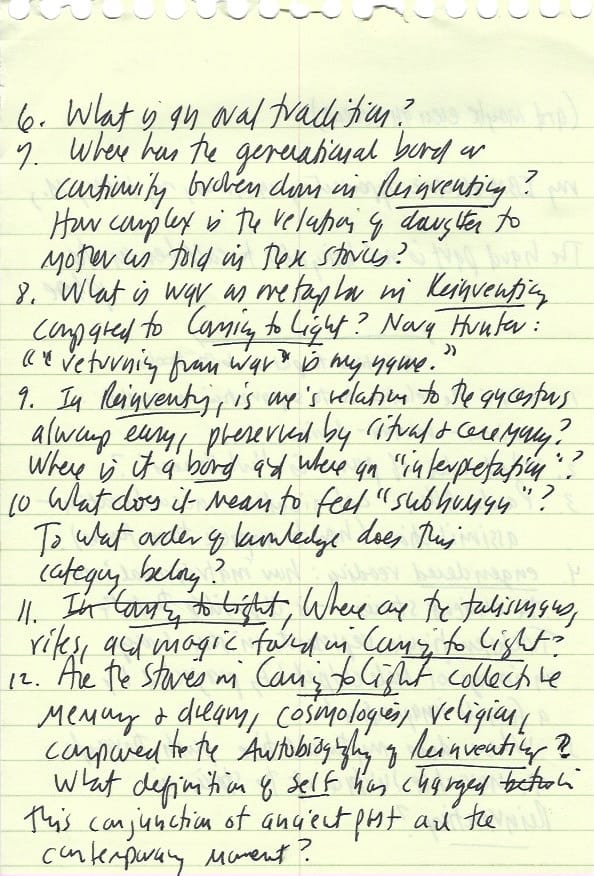 6. What is an oral tradition?
7. Where has the generational bond or
continuity broken down in Reinventing?
How complex is the relation of daughter to
mother as told in these stories?
8. What is war as metaphor in Reinventing
compared to Coming to Light? Nora Hunter:
"“returning from war” is my name."
9. In Reinventing, is one's relation to the ancestors
always easy, preserved by ritual & ceremony?
Where is it a bond and where an "interpretation"?
10 What does it mean to feel "subhuman"?
To what order of knowledge does this
category belong?
11. In Coming to Light, Where are the talismans,
rites, and magic found in Coming to Light?
12. Are the stories in Coming to Light collective
memory & dream, cosmologies, religion,
compared to the Autobiography of Reinventing?
What definition of self has changed
this conjunction of ancient past and the
contemporary moment?